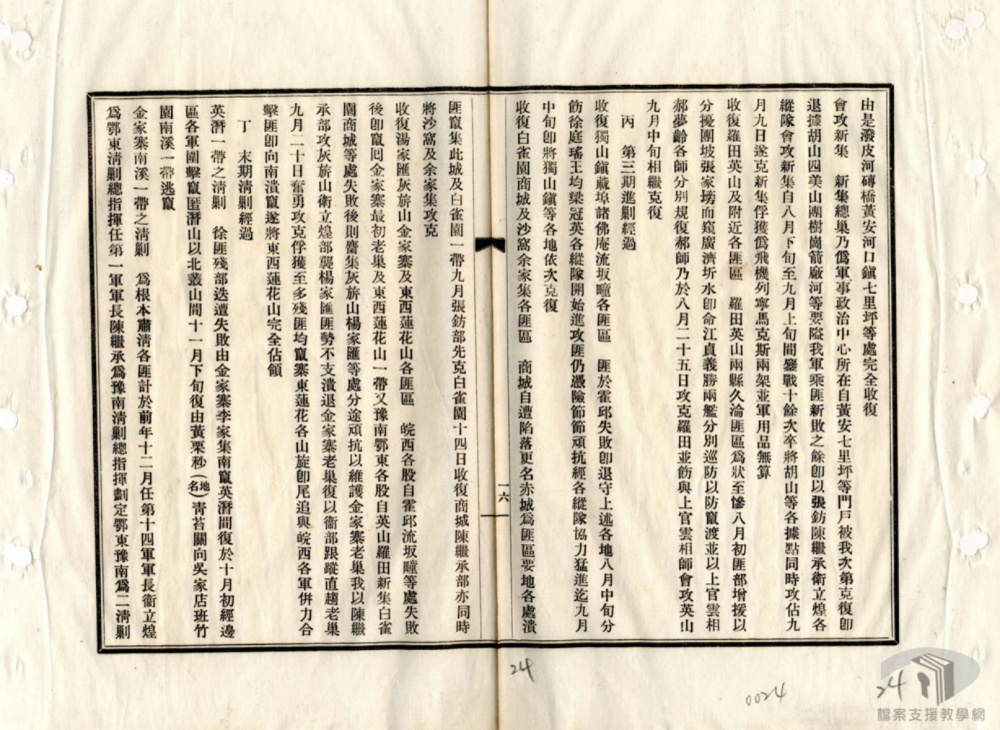 由是潑皮河磚橋黃安河口鎮七里坪等處完全收復
會攻新集　新集總巢乃僞軍事政治中心所在自黃安七里坪等門戶被我次第克復卽
退據胡山四美山團樹崗箭廠河等要隘我軍乘匪新敗之餘卽以張鈁陳繼承衛立煌各
縱隊會攻新集自八月下旬至九月上旬間鏖戰十餘次卒將胡山等各據點同時攻佔九
月九日遂克新集俘獲僞飛機列寧馬克斯兩架並軍用品無算
收復羅田英山及附近各匪區　羅田英山兩縣久淪匪區爲狀至慘八月初匪部增援以
分擾團坡張家塝而窺廣濟圻水卽命江貞義勝兩艦分別巡防以防竄渡並以上官雲相
郝夢齡各師分別規復郝師乃於八月二十五日攻克羅田並飭與上官雲相師會攻英山
九月中旬相繼克復
丙　第三期進剿經過
收復獨山鎮藏埠諸佛庵流坂疃各匪區　匪於霍邱失敗卽退守上述各地八月中旬分
飭徐庭瑤王均梁冠英各縱隊開始進攻匪仍憑險節節頑抗經各縱隊協力猛進迄九月
中旬卽將獨山鎮等各地依次克復
收復白雀園商城及沙窩余家集各匪區　商城自遭陷落更名赤城爲匪區要地各處潰
一六
匪竄集此城及白雀園一帶九月張鈁部先克白雀園十四日收復商城陳繼承部亦同時
將沙窩及余家集攻克
收復湯家匯灰旂山金家寨及東西蓮花山各匪區　皖西各股自霍邱流坂疃等處失敗
後卽竄囘金家寨最初老巢及東西蓮花山一帶又豫南鄂東各股自英山羅田新集白雀
園商城等處失敗後則麕集灰旂山楊家匯等處分途頑抗以維護金家寨老巢我以陳繼
承部攻灰旂山衛立煌部襲楊家匯匪勢不支潰退金家寨老巢復以衛部跟蹤直趨老巢
九月二十日奮勇攻克俘獲至多殘匪均竄寨東蓮花各山旋卽尾追與皖西各軍併力合
擊匪卽向南潰竄遂將東西蓮花山完全佔領
丁　末期清剿經過
英潛一帶之清剿　徐匪殘部迭遭失敗由金家寨李家集南竄英潛間復於十月初經邊
區各軍圍擊竄匿潛山以北叢山間十一月下旬復由黃栗杪（地名）青苔關向吳家店班竹
園南溪一帶逃竄
金家寨南溪一帶之清剿　爲根本肅清各匪計於前年十二月任第十四軍軍長衛立煌
爲鄂東清剿總指揮任第一軍軍長陳繼承爲豫南清剿總指揮劃定鄂東豫南爲二清剿
24
0024
24
檔案支援教學網